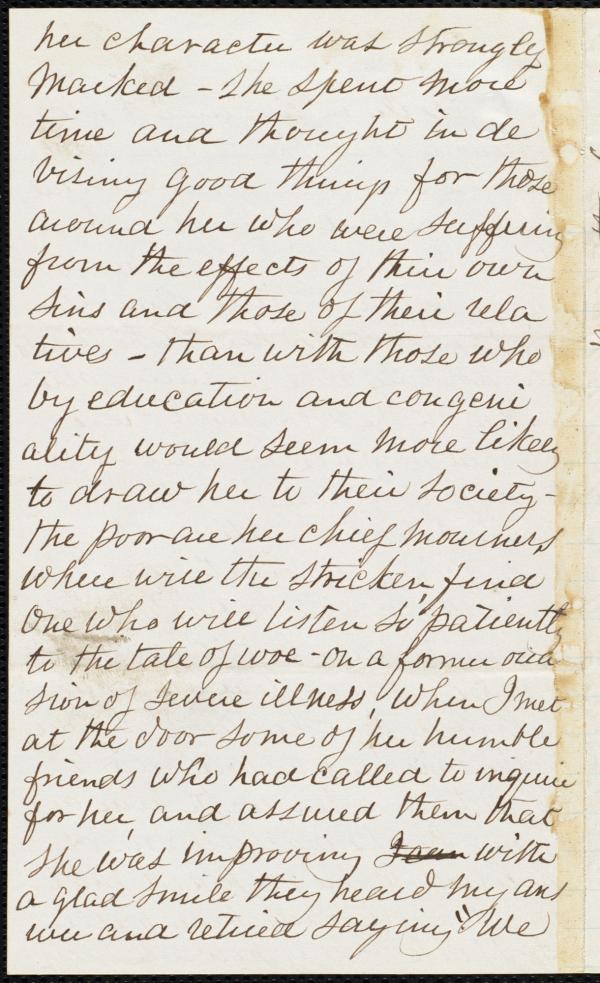 her character was strongly
Marked - She spent more
time and thought in de
vising good things for those
around her who were suffering
from the effects of their own
sins and those of their rela
tives - than with those who
by education and congeni
ality would seem more likely
to draw her to their society -
the poor are her chief mourners
where will the stricken, find
One who will listen so patiently
to the tale of woe - on a former occa
sion of severe illness, when I met
at the door some of her humble
friends who had called to inquire
for her, and assured them that
she was improving I saw with
a glad smile they heard my ans
wer and retired saying "We